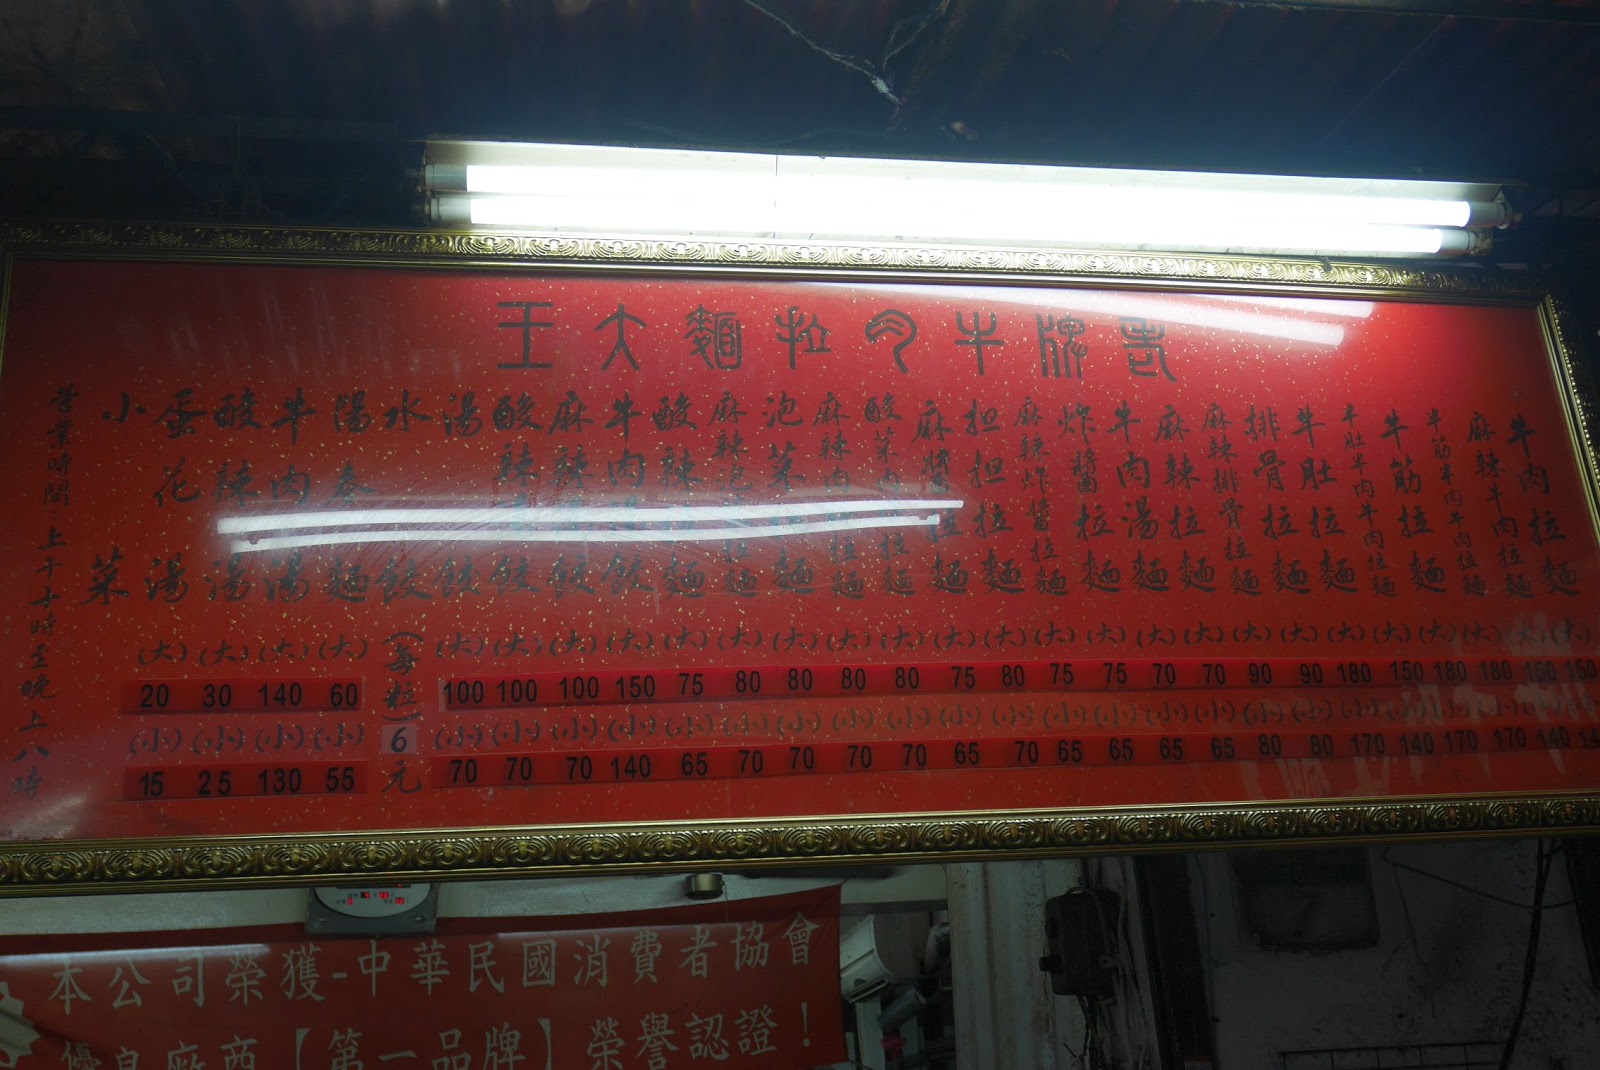 老牌牛肉拉麵大王
牛肉拉麵
麻辣牛肉拉麵
半筋半肉牛肉拉麵
牛筋拉麵
半肚半肉牛肉拉麵
牛肚拉麵
排骨拉麵
麻辣排骨拉麵
麻辣拉麵
牛肉湯拉麵
炸醬拉麵
麻辣炸醬拉麵
担担拉麵
麻醬拉麵
酸菜肉拉麵
麻辣肉拉麵
泡菜麵
麻辣泡拉麵
酸辣麵
牛肉餃
麻辣餃
酸辣餃
湯餃
水餃(每粒)6元
陽春麵
牛肉湯
酸辣湯
蛋花湯
小菜
(大) (大) (大) (大) (大) (大) (大) (大) (大) (大) (大) (大) (大) (大) (大) (大) (大) (大) (大) (大) (大) (大) (大) (大) (大) (大) (大)
20 30 140 60 100 100 100 150 75 80 80 80 80 75 80 75 75 70 70 90 90 180 150 180 180 150 150
(小) (小) (小) (小) (小) (小) (小) (小) (小) (小) (小) (小) (小) (小) (小) (小) (小) (小) (小) (小) (小) (小) (小) (小) (小) (小)
15 25 130 55 70 70 70 140 65 70 70 70 70 65 70 65 65 65 65 80 80 170 140 170 170 140 14
營業時間：上午十時至晚上八時
本公司榮獲-中華民國消費者協會
優良廠商【第一品牌】榮譽認證！